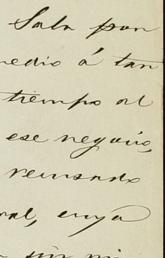 Sala por
medio á tan
tiempo al
ese negocio,
revisado
ral, cuya